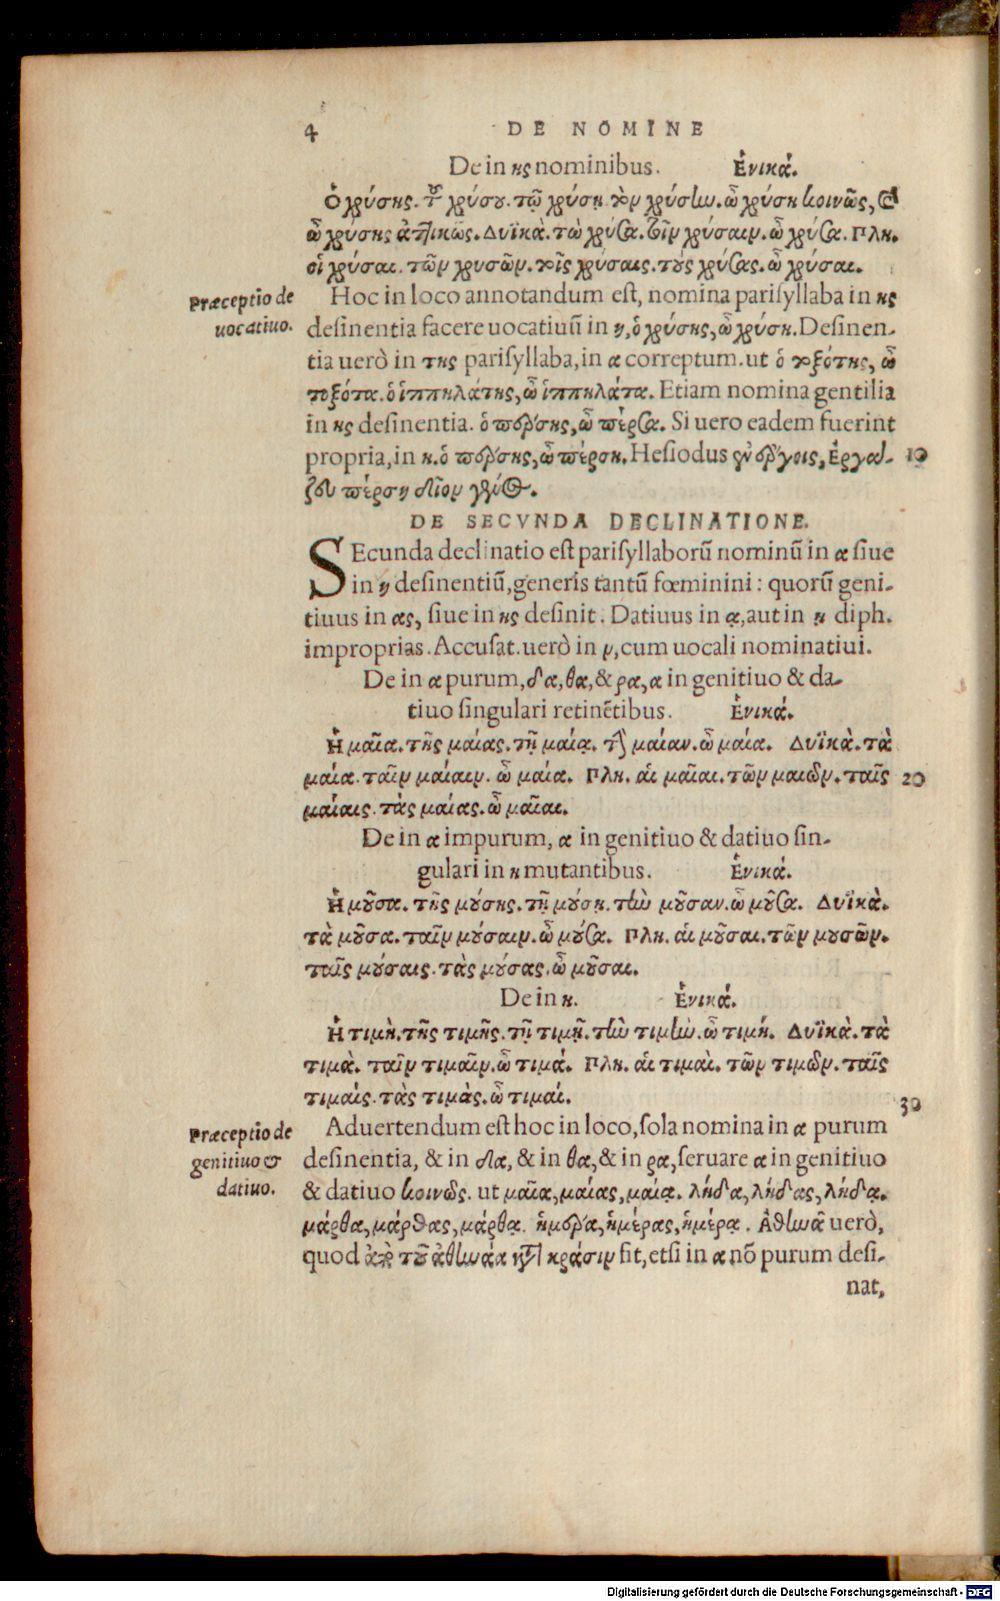 4 DE NOMINE
De in ης nominibus. Ἑνικά.
Ὁ χρύσης. τοῦ χρύσου. τῷ χρύσῃ. τὸν χρύσην. ὦ χρύση κοινῶς, &
ὦ χρύσης ἀττικῶς. Δυϊκὰ. τὼ χρύσα. τοῖν χρύσαιν. ὦ χρύσα. Πλη.
οἱ χρύσαι. τῶν χρυσῶν. τοῖς χρύσαις. τοὺς χρύσας. ὦ χρύσαι.
Præceptio de
uocatiuo.
Hoc in loco annotandum est, nomina parisyllaba in ης
desinentia facere uocatiuū in η, ὁ χρύσης, ὦ χρύση. Desinen-
tia uerò in της parisyllaba, in α correptum. ut ὁ τοξότης, ὦ
τοξότα. ὁ ἱππηλάτης, ὦ ἱππηλάτα. Etiam nomina gentilia
in ης desinentia. ὁ πέρσης, ὦ πέρσα. Si uero eadem fuerint
propria, in η. ὁ πέρσης, ὦ πέρση. Hesiodus ἐν ἔργοις, Ἐργά- 10
ζου πέρση δῖον γένος.
DE SECVNDA DECLINATIONE.
SEcunda declinatio est parisyllaborū nominū in α siue
in η desinentiū, generis tantū fœminini: quorū geni-
tiuus in ας, siue in ης desinit. Datiuus in ᾳ, aut in ῃ diph.
improprias. Accusat. uerò in ν, cum uocali nominatiui.
De in α purum, δα, θα, & ρα, α in genitiuo & da-
tiuo singulari retinētibus. Ἑνικά.
Ἡ μαῖα. τῆς μαίας. τῇ μαίᾳ. τὴν μαίαν. ὦ μαία. Δυϊκὰ. τὰ
μαία. ταῖν μαίαιν. ὦ μαία. Πλη. αἱ μαῖαι. τῶν μαιῶν. ταῖς 20
μαίαις. τὰς μαίας. ὦ μαῖαι.
De in α impurum, α in genitiuo & datiuo sin-
gulari in η mutantibus. Ἑνικά.
Ἡ μοῦσα. τῆς μούσης. τῇ μούσῃ. τὴν μοῦσαν. ὦ μοῦσα. Δυϊκὰ.
τὰ μοῦσα. ταῖν μούσαιν. ὦ μούσα. Πλη. αἱ μοῦσαι. τῶν μουσῶν.
ταῖς μούσαις. τὰς μούσας. ὦ μοῦσαι.
De in η. Ἑνικά.
Ἡ τιμὴ. τῆς τιμῆς. τῇ τιμῇ. τὴν τιμὴν. ὦ τιμή. Δυϊκὰ. τὰ
τιμὰ. ταῖν τιμαῖν. ὦ τιμά. Πλη. αἱ τιμαὶ. τῶν τιμῶν. ταῖς
τιμαῖς. τὰς τιμὰς. ὦ τιμαί. 30
Præceptio de
genitiuo &
datiuo.
Aduertendum est hoc in loco, sola nomina in α purum
desinentia, & in δα, & in θα, & in ρα, seruare α in genitiuo
& datiuo κοινῶς. ut μαῖα, μαίας, μαίᾳ. λήδα, λήδας, λήδᾳ.
μάρθα, μάρθας, μάρθᾳ. ἡμέρα, ἡμέρας, ἡμέρᾳ. Ἀθηνᾶ uerò,
quod ἀπὸ τοῦ ἀθηνάα κατὰ κρᾶσιν fit, etsi in α nō purum desi-
nat,
Digitalisierung gefördert durch die Deutsche Forschungsgemeinschaft - DFG